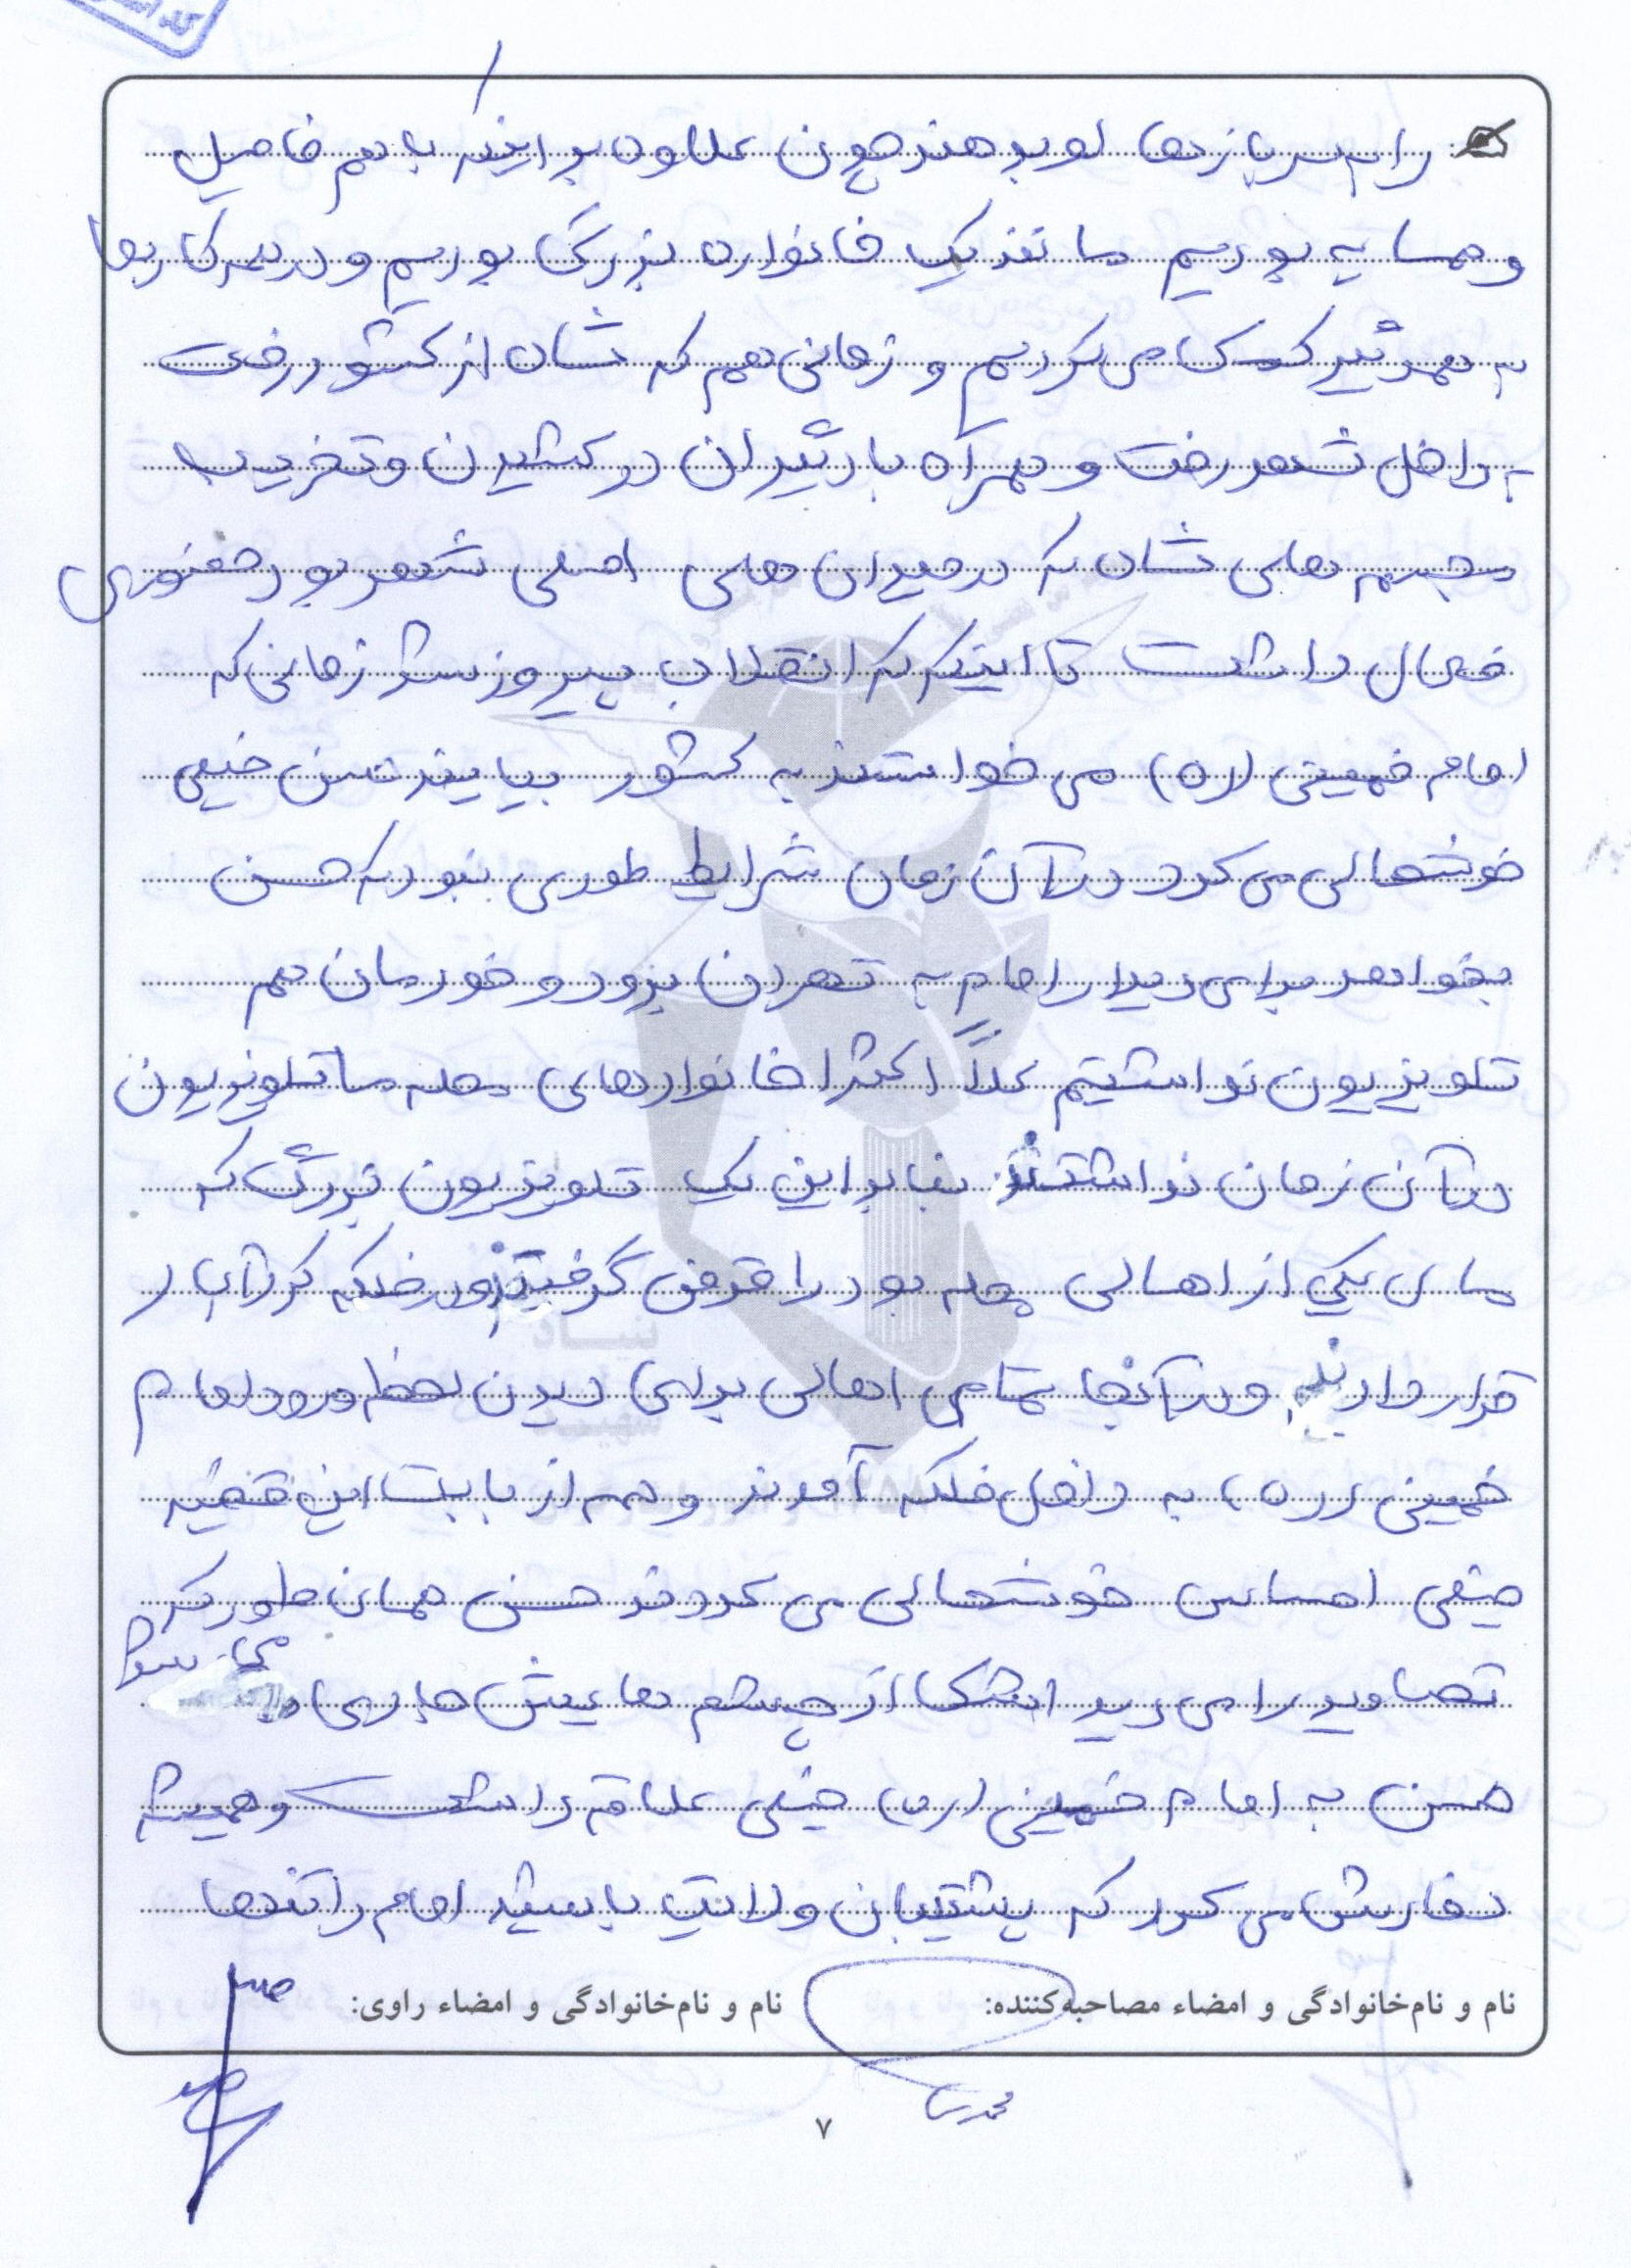 را به سربازها لو بدهند چون علاوه بر اینکه با هم فامیل
و همسایه بودیم مانند یک خانواده بزرگ بودیم و در همه کارها
به همدیگر کمک می کردیم و زمانی هم که شاه از کشور رفت
به داخل شهر رفت و همراه با دیگران در کشیدن و تخریب
مجسمه های شاه که در میدان های اصلی شهر بود حضوری
فعال داشت تا اینکه که انقلاب پیروز شد زمانی که
امام خمینی (ره) می خواستند به کشور بیایند حسن خیلی
خوشحالی می کرد در آن زمان شرایط طوری نبود که حسن
بخواهد برای دیدار امام به تهران برود و خودمان هم
تلویزیون نداشتیم عملاً اکثر خانوادهای محله ما تلویزیون
در آن زمان نداشتند بنابراین یک تلویزیون بزرگ که
مال یکی از اهالی محله بود را قرض گرفتند و در فلکه گردآب
قرار دادند و در آنجا تمامی اهالی برای دیدن لحظه ورود امام
خمینی (ره) به داخل فلکه آمدند و همه از بابت این قضیه
خیلی احساس خوشحالی می کردند حسن همان طور که
تصاویر را می دید اشک از چشم هایش جاری می شد
حسن به امام خمینی (ره) خیلی علاقه داشت و همیشه
سفارش می کرد که پشتیبان ولایت باشید امام را تنها
نام و نام‌خانوادگی و امضاء مصاحبه‌کننده:
نام و نام‌خانوادگی و امضاء راوی:
۷